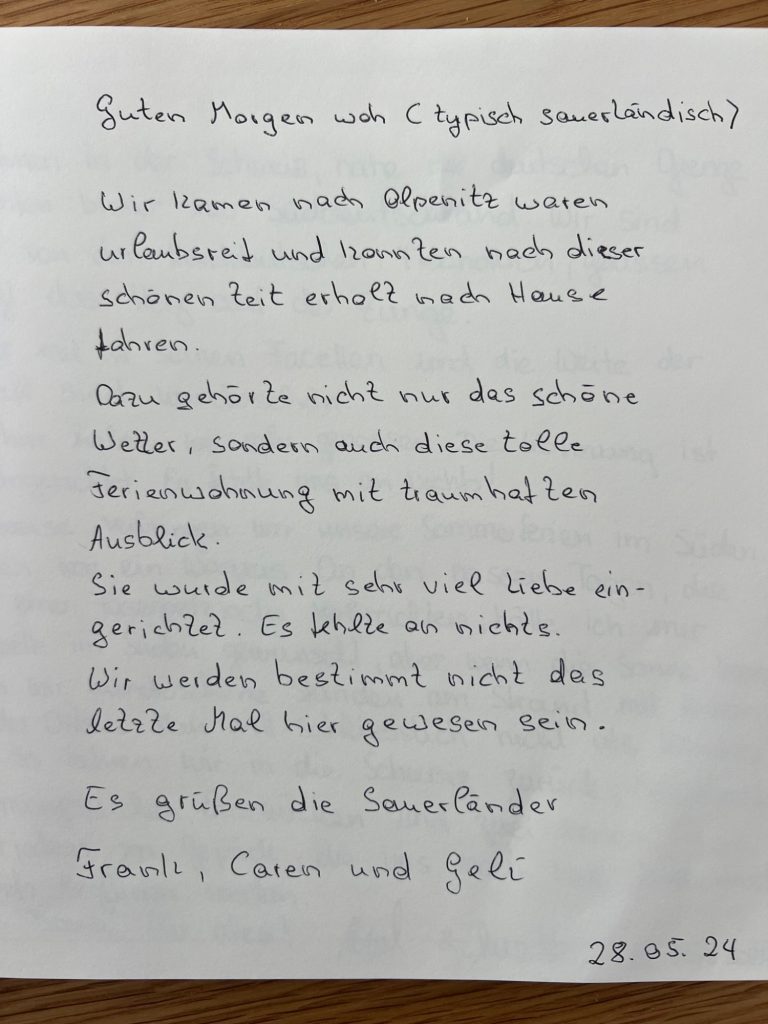 Guten Morgen woh (typisch sauerländisch)
Wir kamen nach Olpenitz waren
urlaubsreif und konnten nach dieser
schönen Zeit erholt nach Hause
fahren.
Dazu gehörte nicht nur das schöne
Wetter, sondern auch diese tolle
Ferienwohnung mit traumhaften
Ausblick.
Sie wurde mit sehr viel Liebe ein-
gerichtet. Es fehlte an nichts.
Wir werden bestimmt nicht das
letzte Mal hier gewesen sein.
Es grüßen die Sauerländer
Frank, Caren und Geli
28.05.24